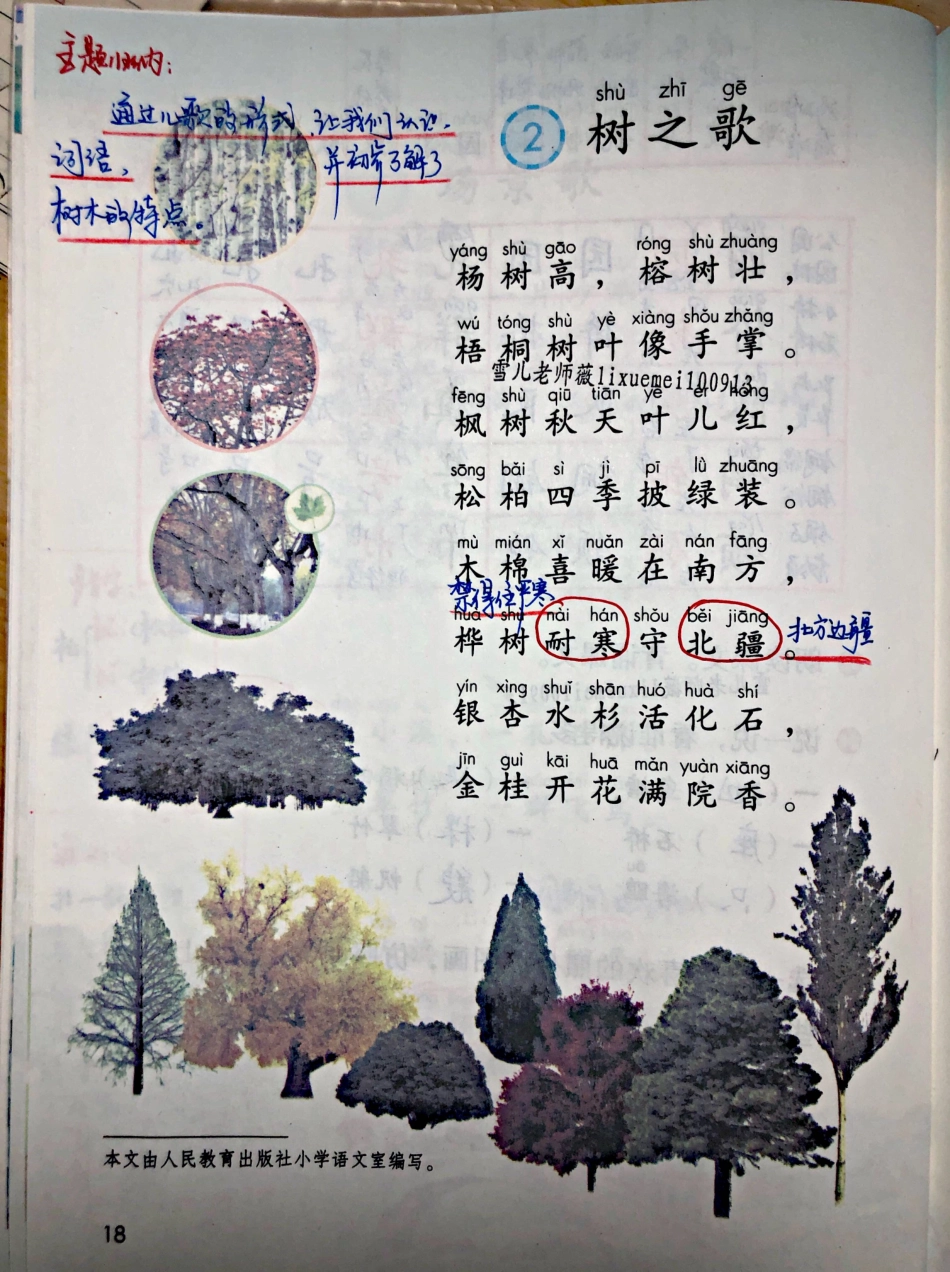 主题归纳：
通过儿歌的形式 让我们认识
词语， 并初步了解了
树木的特点。
2
shù zhī gē
树之歌
yáng shù gāo róng shù zhuàng
杨树高，榕树壮，
wú tóng shù yè xiàng shǒu zhǎng
梧桐树叶像手掌。
雪儿老师薇lixuemei100913
fēng shù qiū tiān yè ér hóng
枫树秋天叶儿红，
sōng bǎi sì jì pī lǜ zhuāng
松柏四季披绿装。
mù mián xǐ nuǎn zài nán fāng
木棉喜暖在南方，
禁得住严寒
huà shù nài hán shǒu běi jiāng
桦树耐寒守北疆。
北方边疆
yín xìng shuǐ shān huó huà shí
银杏水杉活化石，
jīn guì kāi huā mǎn yuàn xiāng
金桂开花满院香。
本文由人民教育出版社小学语文室编写。
18